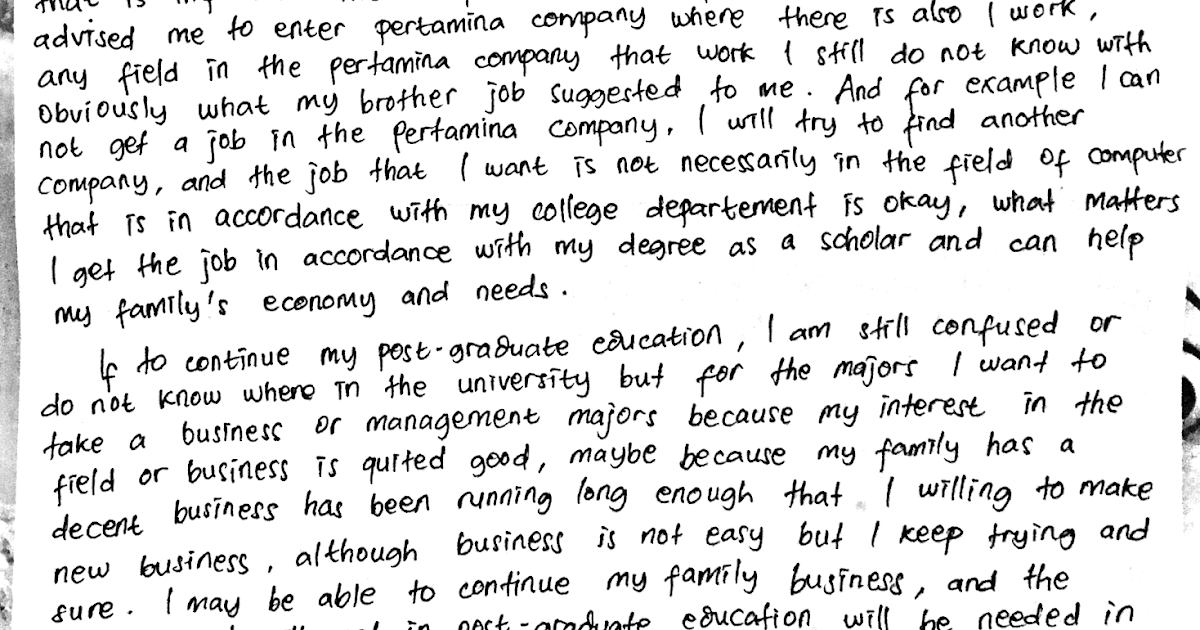 that is my
advised me to enter pertamina company where there is also I work,
any field in the pertamina company that work I still do not know with
obviously what my brother job suggested to me. And for example I can
not get a job in the Pertamina company, I will try to find another
company, and the job that I want is not necessarily in the field of computer
that is in accordance with my college departement is okay, what matters
I get the job in accordance with my degree as a scholar and can help
my family's economy and needs.
If to continue my post-graduate education, I am still confused or
do not know where in the university but for the majors I want to
take a business or management majors because my interest in the
field or business is quited good, maybe because my family has a
decent business has been running long enough that I willing to make
new business, although business is not easy but I keep trying and
sure. I may be able to continue my family business, and the
in post-graduate education will be needed in